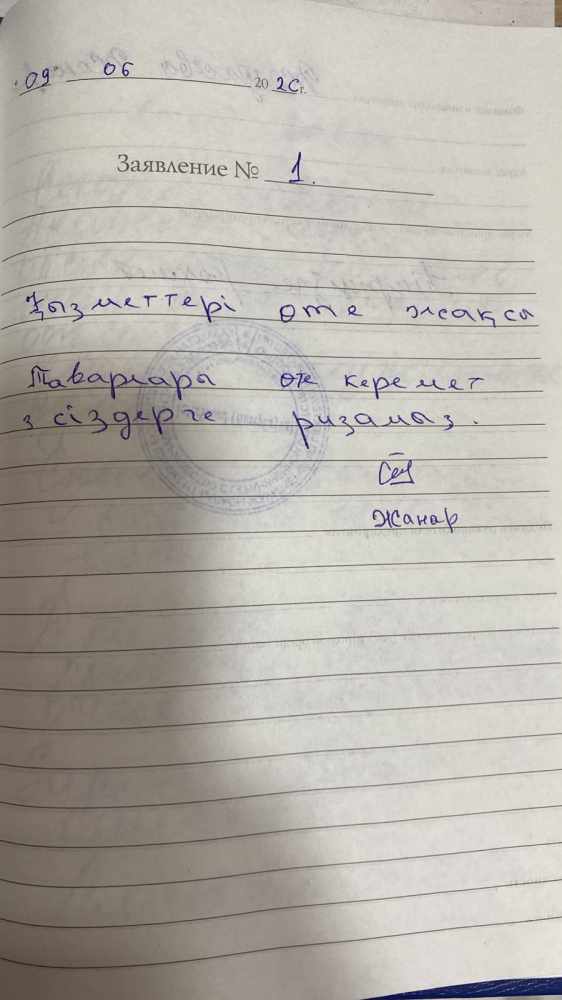 09 06 20 2Сг.
Заявление № 1.
Қызметтері өте жақсы
Таварлары өте керемет
з сіздерге ризамыз.
Жанар